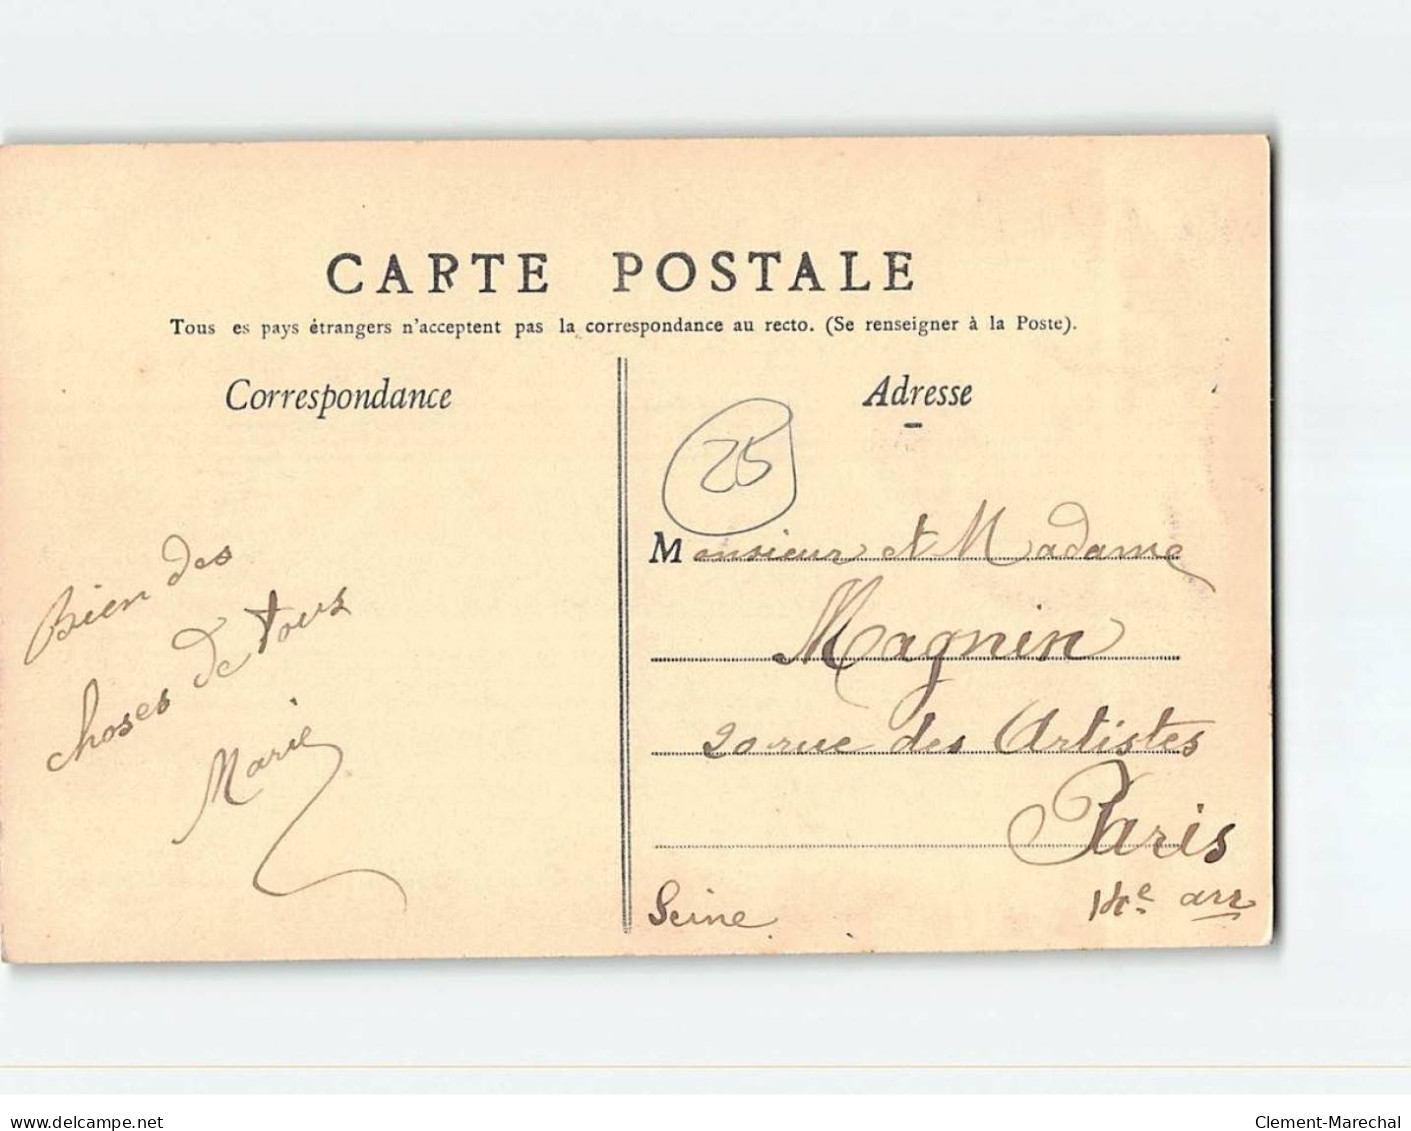 CARTE POSTALE
Tous es pays étrangers n'acceptent pas la correspondance au recto. (Se renseigner à la Poste).
Correspondance
Adresse
25
Bien des
choses de tous
Marie
Monsieur et Madame
Magnin
20 rue des Artistes
Paris
Seine
14e arr
delcampe.net
Clement-Marechal